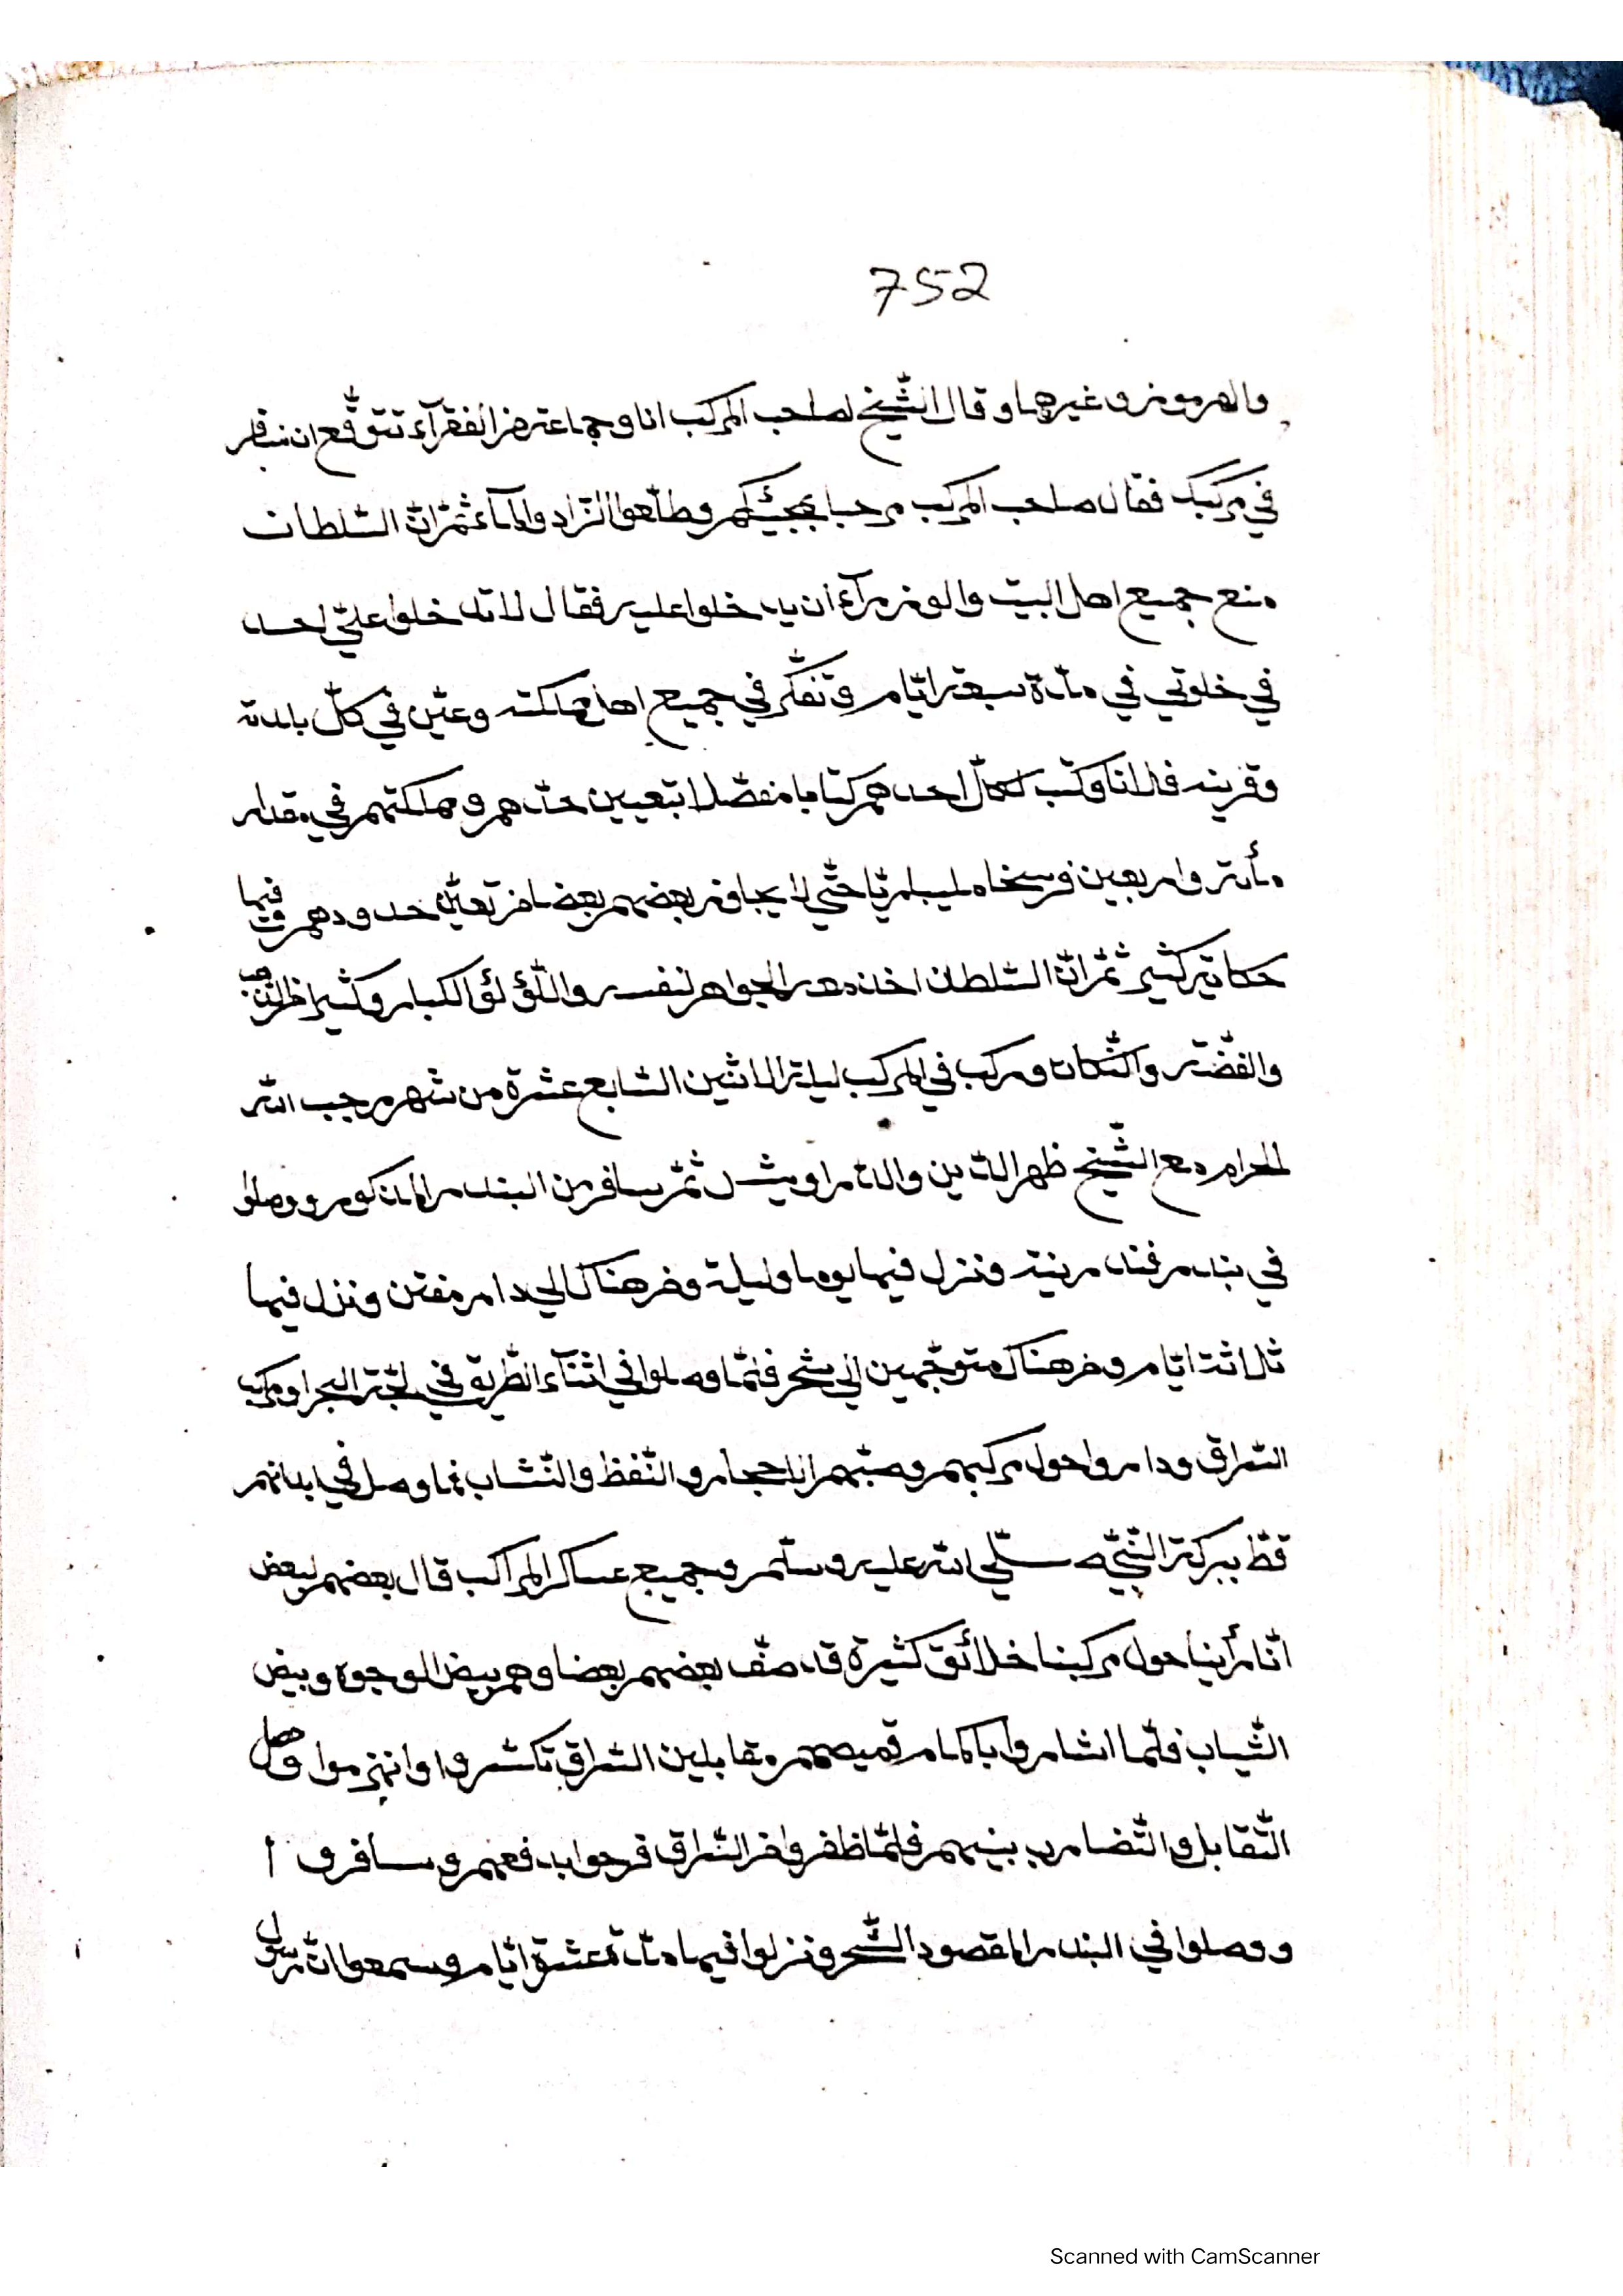 752
والهرموز وغيرهما وقال الشّيخ لصاحب المركب انا وجماعة من الفقرآء نتوقّع ان نسافر
في مركبك فقال صاحب المركب مرحبا بمجيئكم وطلّعوا الزّاد والمآء ثمّ انّ السّلطان
منع جميع اهل البيت والوزرآء أن يدخلوا عليه فقال لا تدخلوا عليّ احد
في خلوتي في مدّة سبعة ايّام وتفكّر في جميع اهل مملكته وعيّن في كلّ بلدة
وقرية وكتب لكلّ احدهم كتابا مفصّلا بتعيين حدّهم ومملكتهم في مقدار
مأة واربعين فرسخا مليبارّيا حتّى لا يجاوز بعضهم بعضا من تعيّن حدودهم وفيها
حكاية كثير ثمّ انّ السّلطان اخذ معه الجواهر لنفسه واللّؤلؤ الكبار وكثيرا من الذّهب
والفضّة وركب في المركب ليلة الاثنين السّابع عشرة من شهر رجب الله
الحرام مع الشّيخ ظهر الدّين والدّراويش ثمّ سافر من البندر المذكور ووصلوا
في بندر فندرينة ونزل فيها يوما وليلة ومن هناك الى درمفتن ونزل فيها
ثلاثة ايّام ومن هناك متوجّهين الى شحر فلمّا وصلوا في اثنآء الطّريق في لجّة البحر ومركب
السّراق وداروا حول مركبهم وصبّهم الاحجار والنّفط والنّشاب فما وصل في ابدانهم
قطّ ببركة النّبيّ صلّى الله عليه وسلّم وجميع عساكر المراكب قال بعضهم لبعض
انّا رأينا حول مركبنا خلائق كثيرة قد صفّ بعضهم بعضا وهم بيض الوجوه وبيض
الثّياب فلمّا اشاروا باكمام قميصهم مقابلين السّراق تكسّروا وانهزموا وحصل
التّقابل والتّضارب بينهم فلمّا ظفروا من السّراق فرحوا بدفعهم وسافروا
ووصلوا في البندر المقصود الشّحر ونزلوا فيها مدّة عشرة ايّام وسمعوا انّ رسول